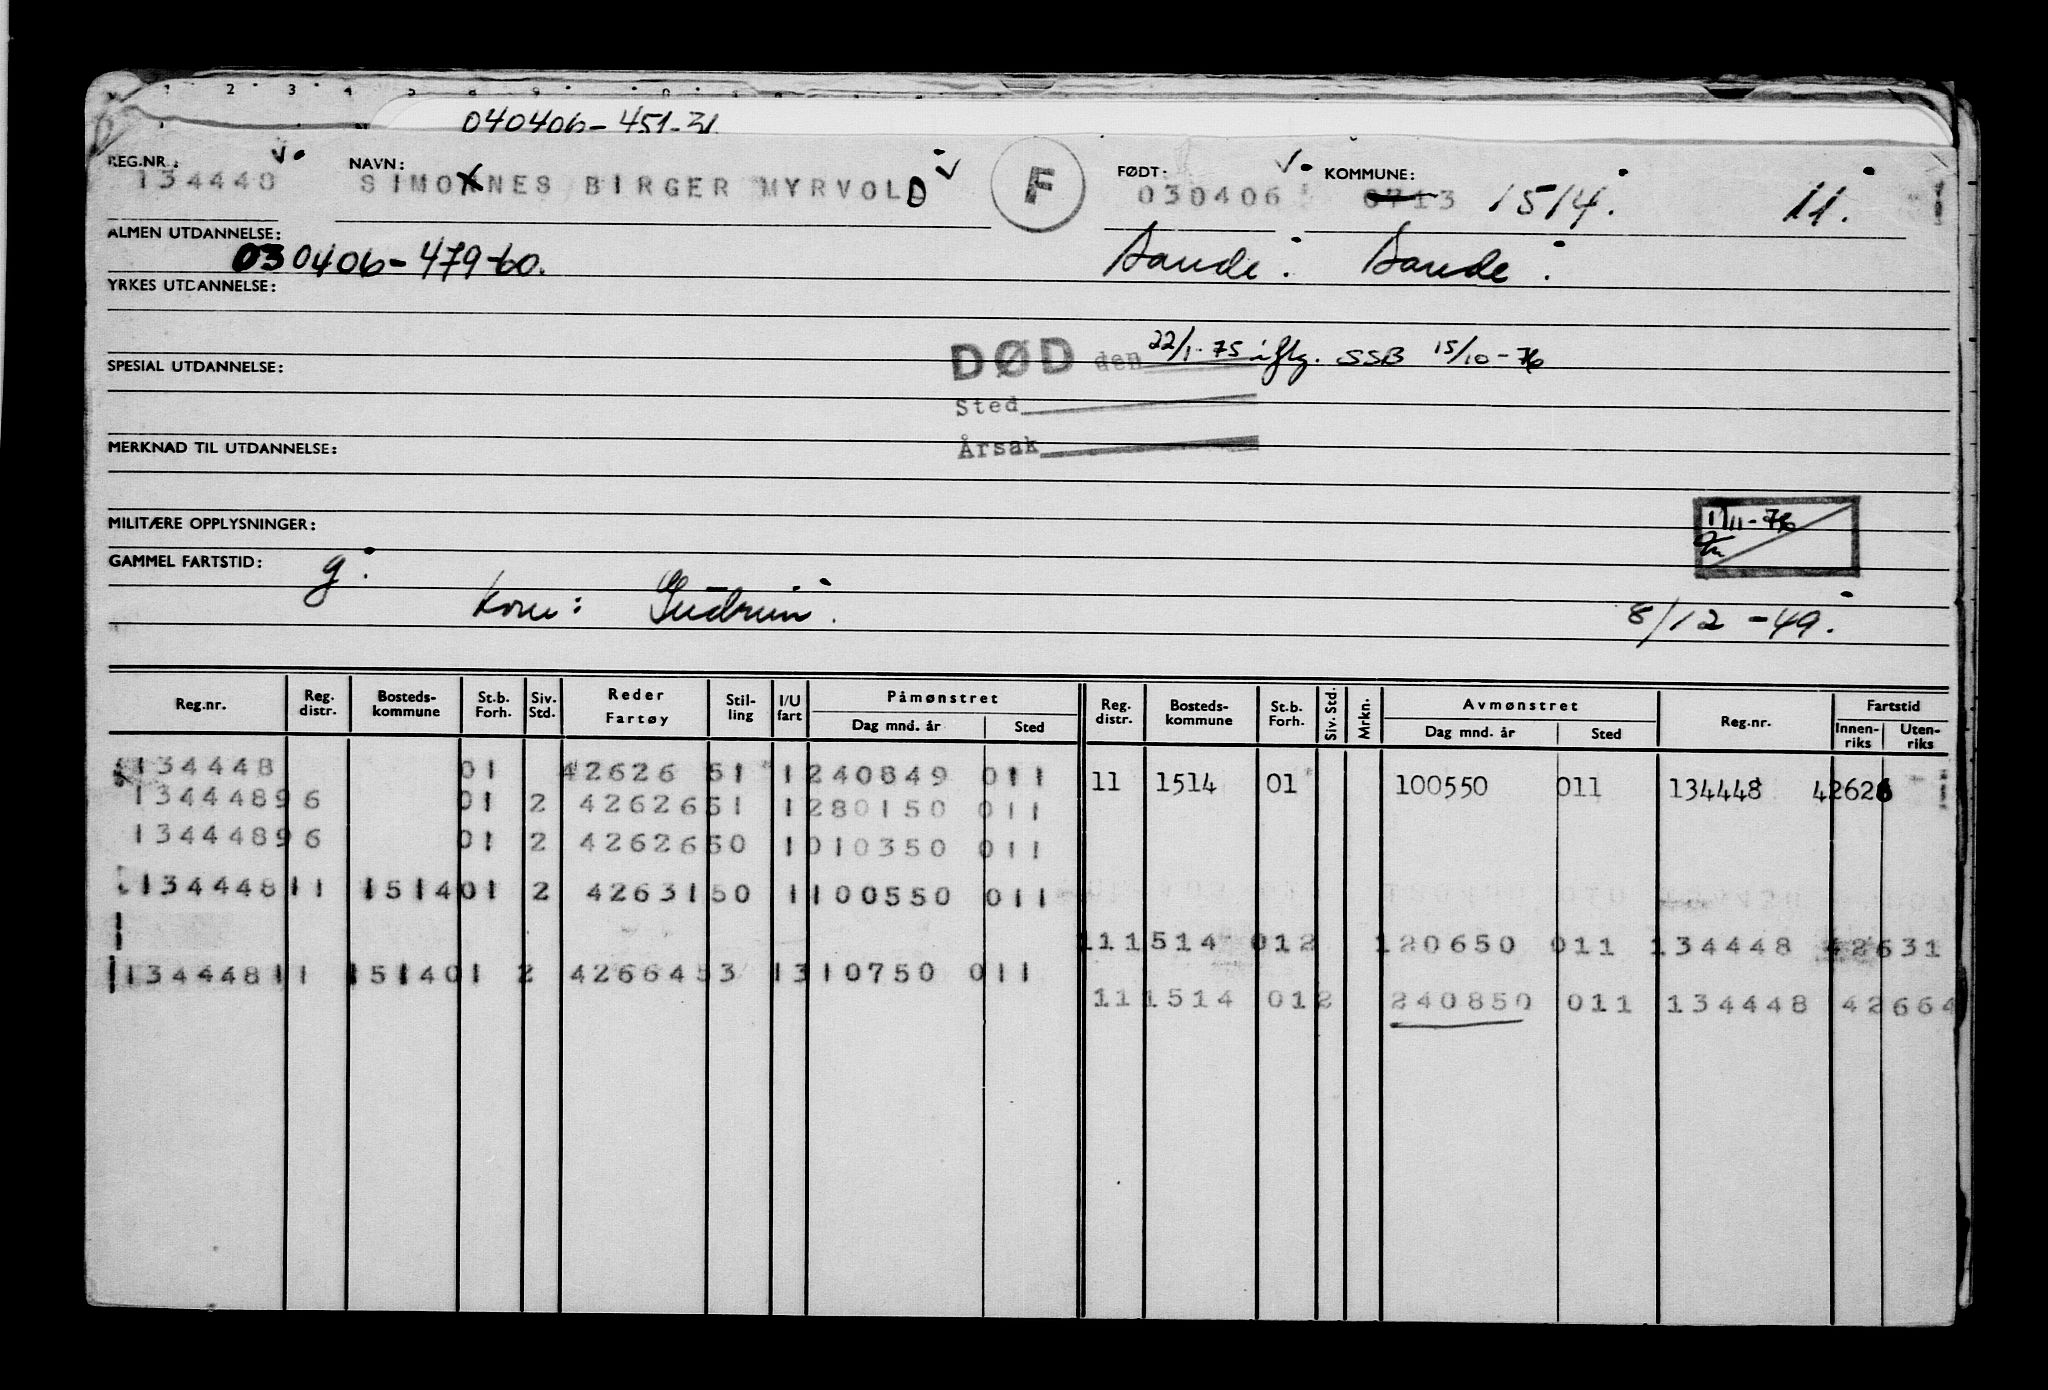 1 2 3 4 5
040406-451-31
REG.NR.: NAVN: FØDT: KOMMUNE:
134448 SIMONNES BIRGER MYRVOLD F 030406 0713 1514. 11.
ALMEN UTDANNELSE: Sande. Sande.
030406-479-60.
YRKES UTDANNELSE:
DØD den 22/1-75 iflg. SSB 15/10-76
SPESIAL UTDANNELSE:
Sted
Årsak
MERKNAD TIL UTDANNELSE:
MILITÆRE OPPLYSNINGER: 1/11-76
GAMMEL FARTSTID: g.
Kone: Gudrun. 8/12-49.
Reg.nr. Reg. distr. Bosteds-kommune St.b. Forh. Siv. Std. Reder Fartøy Stil-ling I/U fart Påmønstret Dag mnd. år Sted Reg. distr. Bosteds-kommune St.b. Forh. Siv. Std. Mrkn. Avmønstret Dag mnd. år Sted Reg.nr. Fartstid Innen-riks Uten-riks
134448 01 42626 51 1 240849 011 11 1514 01 100550 011 134448 42626
134448 96 01 2 42626 51 1 280150 011
134448 96 01 2 42626 50 1 010350 011
134448 11 1514 01 2 42631 50 1 100550 011
11 1514 01 2 120650 011 134448 42631
134448 11 1514 01 2 42664 53 1 310750 011
11 1514 01 2 240850 011 134448 42664